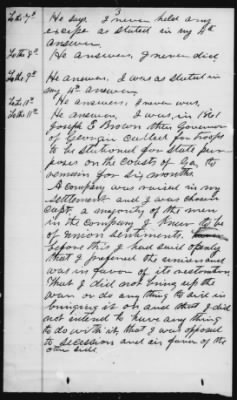 3
To the 7th He says I never held any
except as stated in my 4th
answer.
To the 8th He answers, I never did
To the 9th He answers, I was as stated in
my 4th answer
To the 10th He answers, I never was,
To the 11th He answers I was, in 1861
Joseph E Brown then Governor
of Georgia Called for troops
to be stationed for State pur
poses on the Coasts of Ga, to
remain for six months.
A company was raised in my
settlement and I was chosen
capt, a majority of the men
in the company I knew to be
of union sentiments,
before this I had said openly
that I preferred the union and
was in favor of its restoration
That I did not bring up the
war or do any thing to aid in
bringing it on and that I did
not intend to have any thing
to do with it, that I was opposed
to secession and in favor of the
other side.